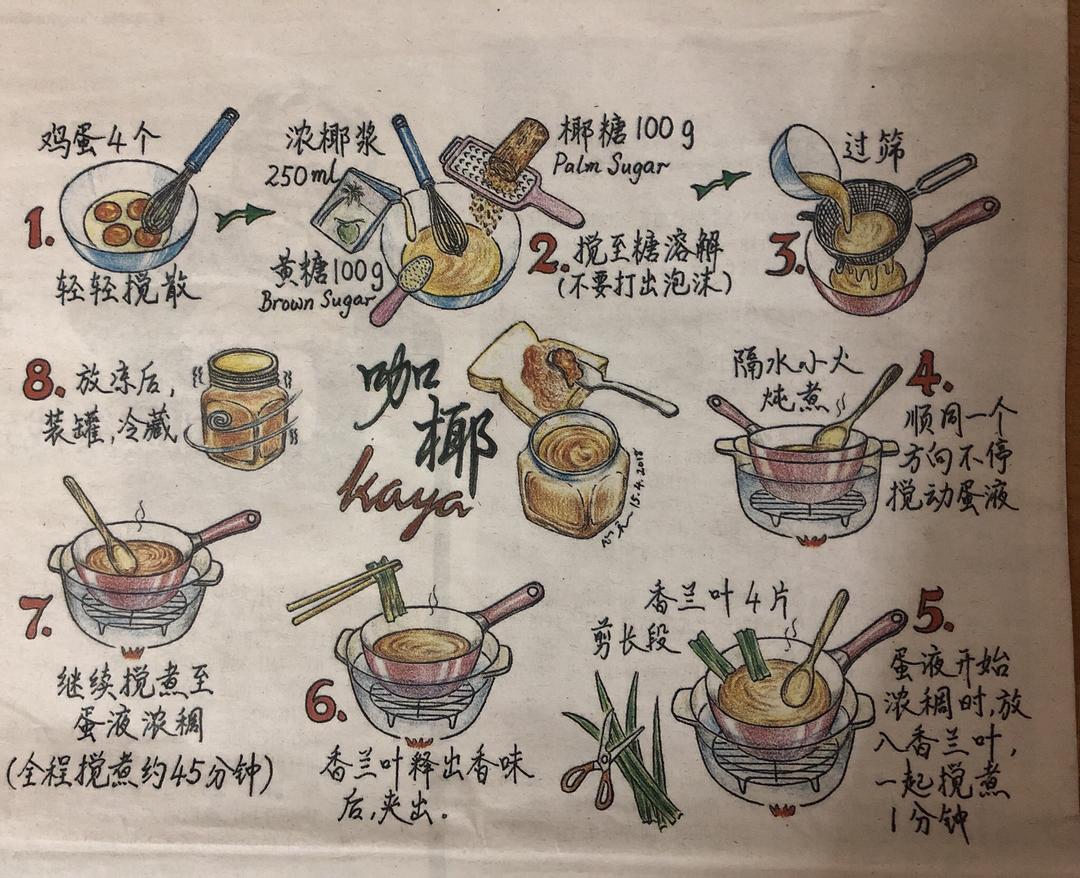 鸡蛋4个
1.
轻轻搅散
浓椰浆
250ml
椰糖100g
Palm Sugar
黄糖100g
Brown Sugar
2. 搅至糖溶解
(不要打出泡沫)
过筛
3.
隔水小火
炖煮
4.
顺同一个
方向不停
搅动蛋液
香兰叶4片
剪长段
5.
蛋液开始
浓稠时,放
入香兰叶,
一起搅煮
1分钟
6.
香兰叶释出香味
后,夹出.
7.
继续搅煮至
蛋液浓稠
(全程搅煮约45分钟)
8. 放凉后,
装罐,冷藏
咖
椰
kaya
15.4.2018